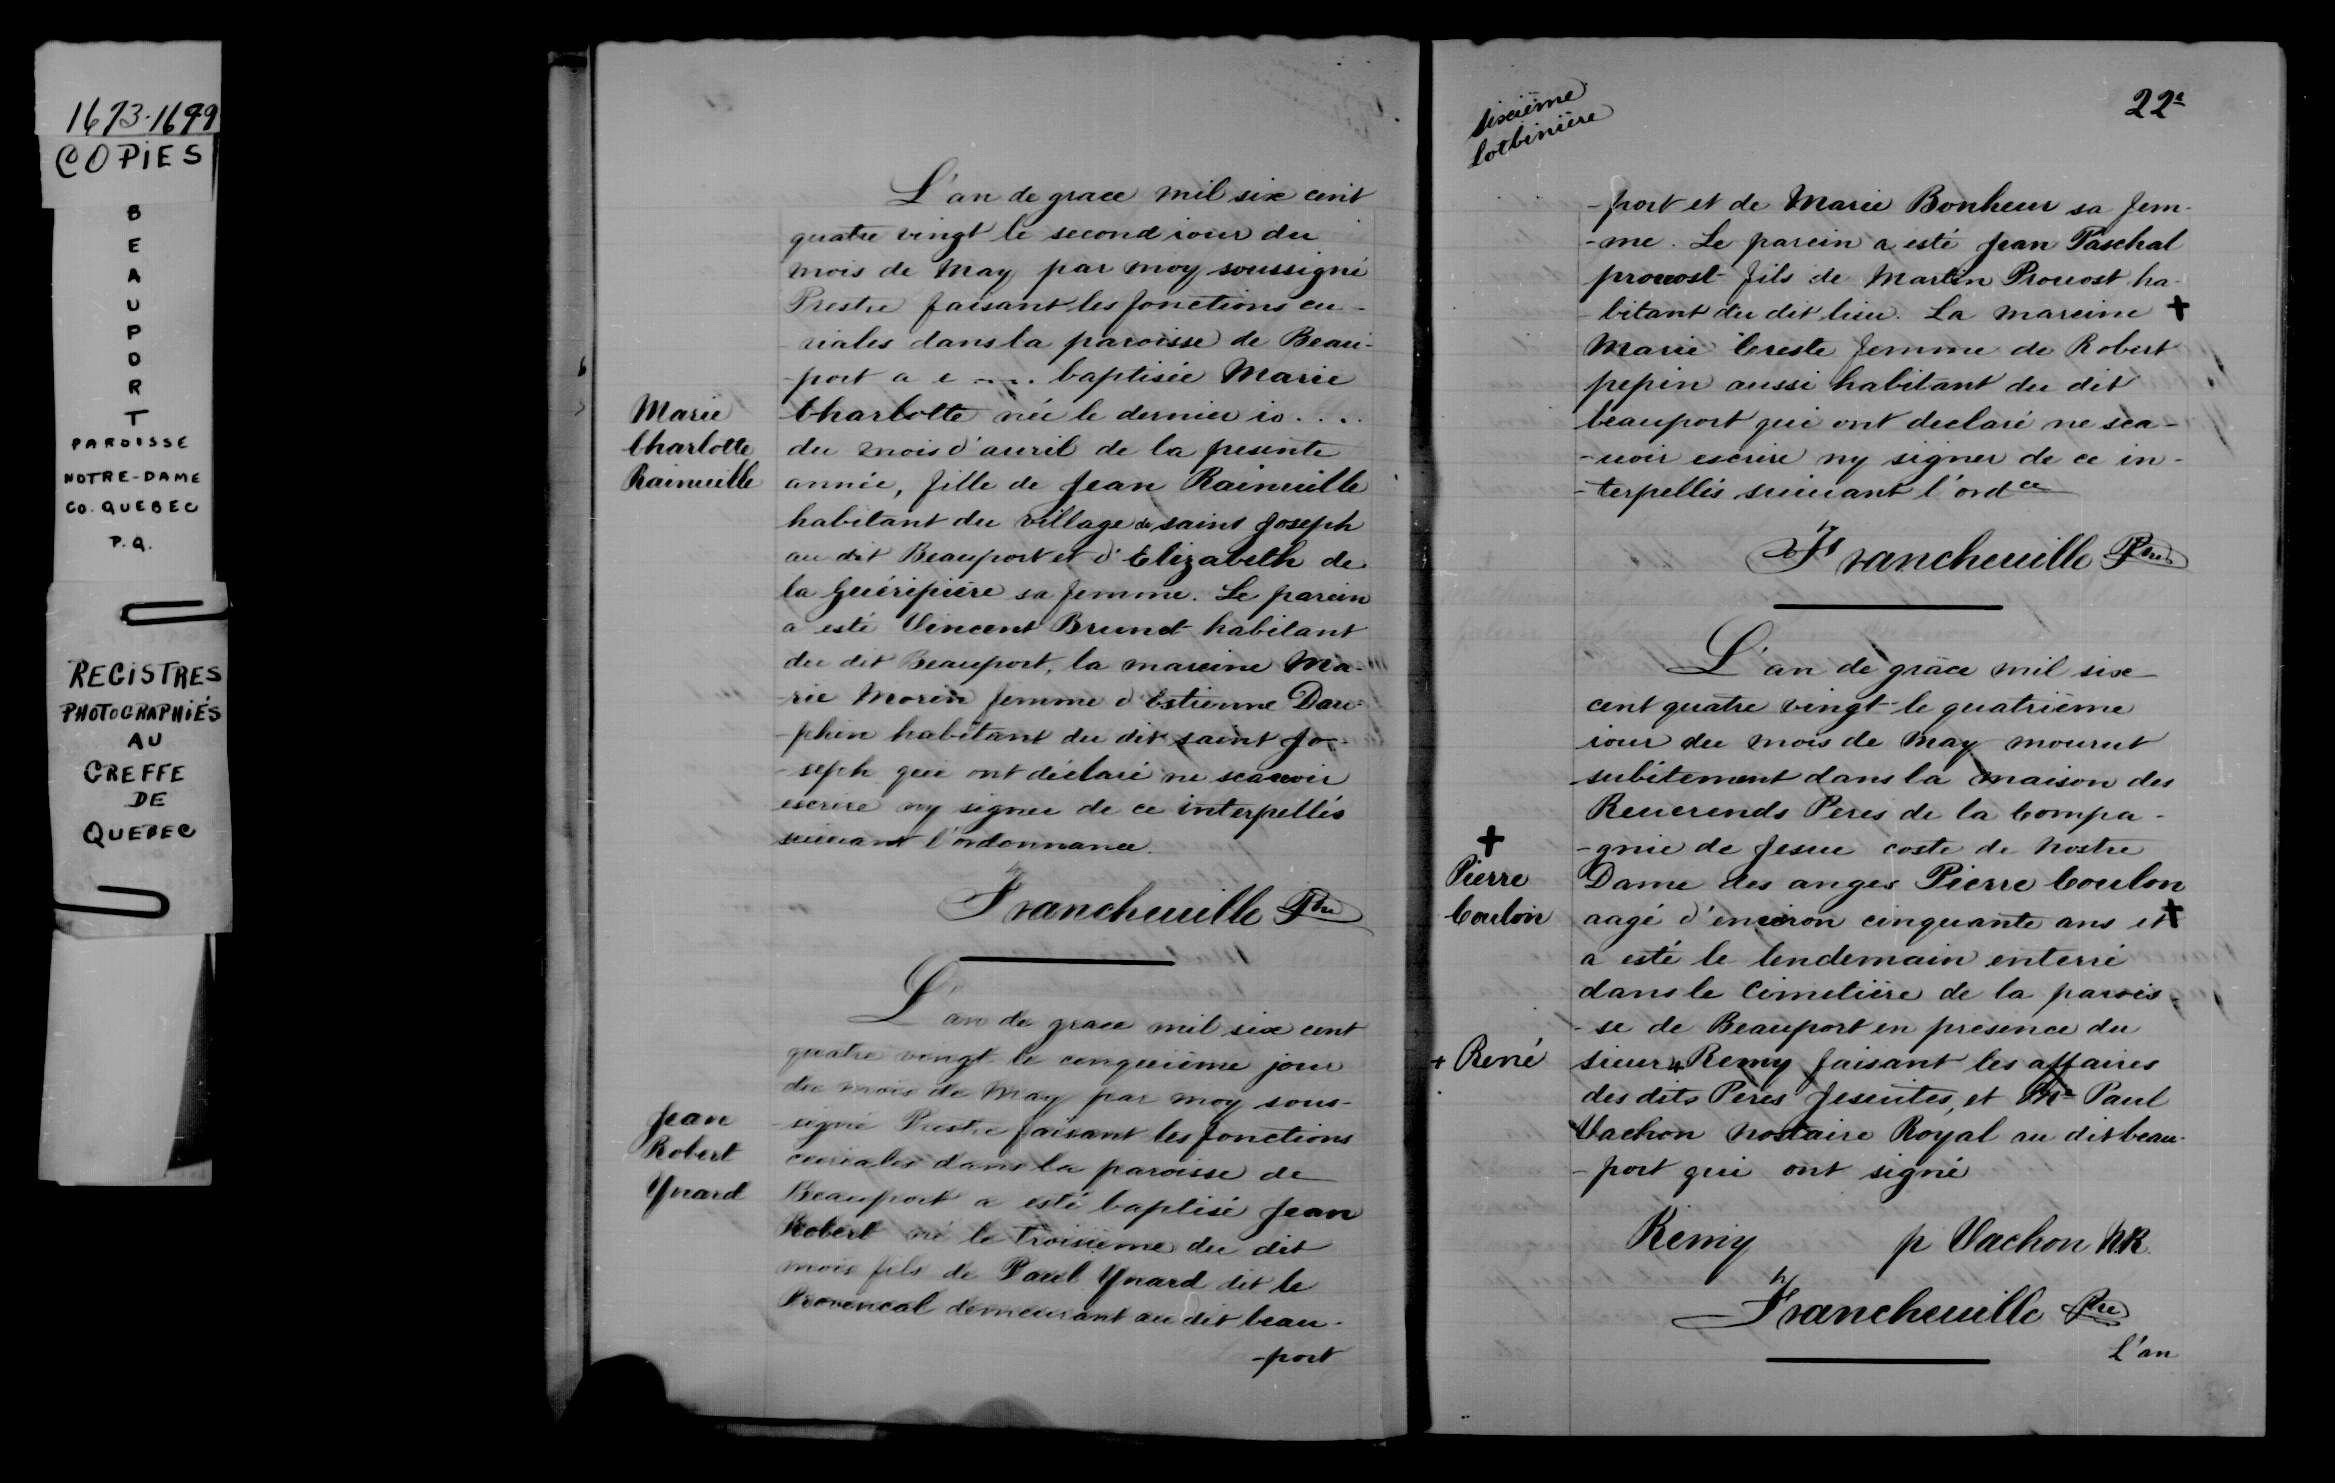 1673-1699
COPIES
BEAUPORT
PAROISSE
NOTRE-DAME
CO. QUEBEC
P.Q.
REGISTRES
PHOTOGRAPHIÉS
AU
GREFFE
DE
QUEBEC
L'an de grace mil six cent
quatre vingt le second iour du
mois de May par moy soussigné
Prestre faisant les fonctions cu-
riales dans la paroisse de Beau-
-port a e .... baptisée Marie
Marie
Charlotte
Rainuille
Charlotte née le dernier io....
du mois d'auril de la presente
année, fille de Jean Rainuille
habitant du village de saint Joseph
au dit Beauport et d'Elizabeth de
la Guéripière sa femme. Le parein
a esté Vincent Brunet habitant
du dit Beauport, la mareine Ma-
-rie Morin femme d'Estienne Dau-
-phin habitant du dit saint Jo-
-seph qui ont déclaré ne scauoir
escrire ny signer de ce interpellés
suiuant l'ordonnance.
Francheuille Ptre
L'an de grace mil six cent
quatre vingt le cinquième jour
du mois de May par moy sous-
-signé Prestre faisant les fonctions
Jean
Robert
Ynard
curiales dans la paroisse de
Beauport a esté baptisé Jean
Robert né le troisième du dit
mois fils de Paul Ynard dit le
Provencal demeurant au dit beau-
-port
sixième
Lotbinière
22e
-port et de Marie Bonheur sa fem-
-me. Le parein a esté Jean Paschal
prouost fils de Martin Prouost ha-
-bitant du dit lieu. La mareine +
Marie Creste femme de Robert
pepin aussi habitant du dit
beauport qui ont declaré ne sca-
-uoir escrire ny signer de ce in-
-terpellés suiuant l'ordce
Francheuille Ptre
L'an de grâce mil six
cent quatre vingt le quatrième
iour du mois de May mourut
subitement dans la maison des
Reuerends Peres de la Compa-
-gnie de Jesus coste de Nostre
+
Pierre
Coulon
Dame des anges Pierre Coulon
aagé d'enuiron cinquante ans et +
a esté le lendemain enterré
dans le Cimetière de la parois-
-se de Beauport en presence du
+ René
sieur + Remy faisant les affaires
des dits Peres Jesuites, et Me Paul
Vachon nostaire Royal au dit beau-
-port qui ont signé
Remy p Vachon N.R.
Francheuille Ptre
L'an